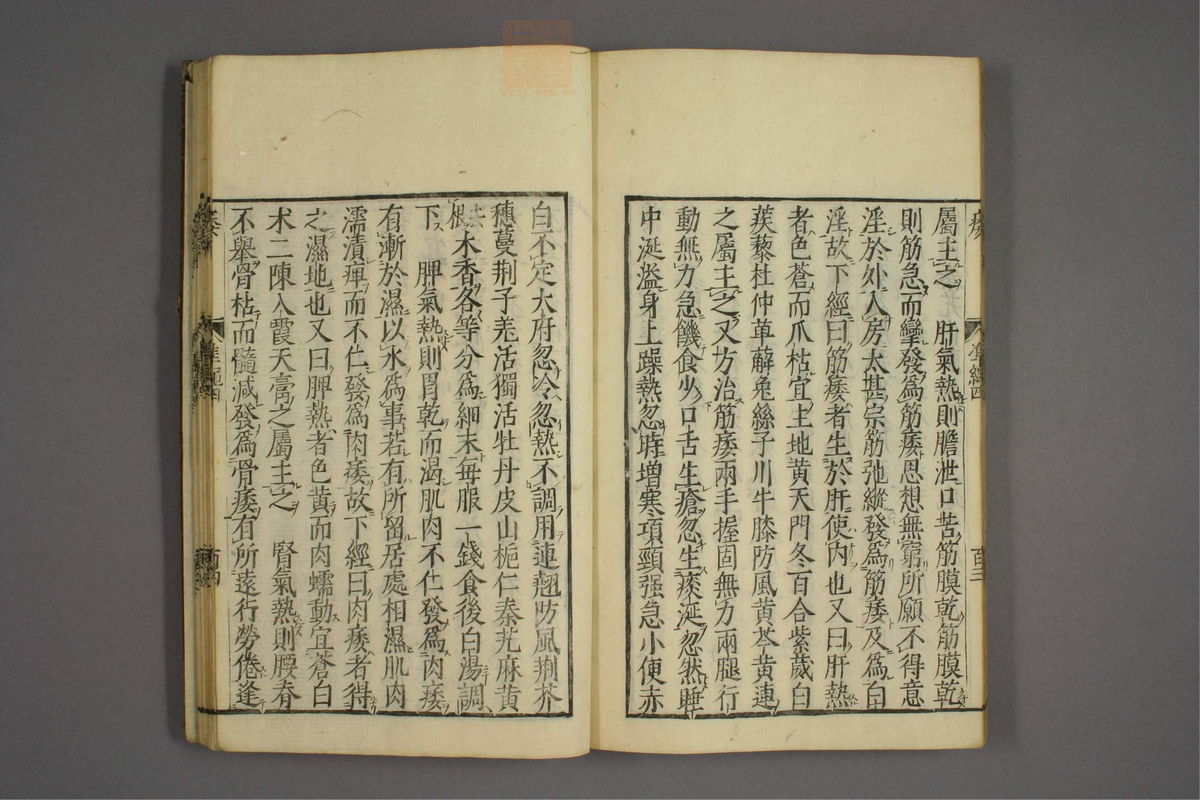 屬主之 肝氣熱則膽泄口苦筋膜乾筋膜乾
則筋急而攣發爲筋痿思想無窮所願不得意
淫於外入房太甚宗筋弛縱發爲筋痿及爲白
淫故下經曰筋痿者生於肝使内也又曰肝熱
者色蒼而爪枯宜主地黄天門冬百合紫葳白
蒺藜杜仲萆薢兔絲子川牛膝防風黄芩黄連
之屬主之又方治筋痿兩手握固無力兩腿行
動無力急饑食少口舌生瘡忽生痰涎忽然睡
中涎溢身上躁熱忽時增寒項頸强急小便赤
白不定大府忽冷忽熱不調用連翹防風荆芥
穗蔓荆子羌活獨活牡丹皮山梔仁秦艽麻黄
根木香各等分爲細末每服一錢食後白湯調
下 脾氣熱則胃乾而渴肌肉不仁發爲肉痿
有漸於濕以水爲事若有所留居處相濕肌肉
濡漬痺而不仁發爲肉痿故下經曰肉痿者得
之濕地也又曰脾熱者色黄而肉蠕動宜蒼白
术二陳入霞天膏之屬主之 腎氣熱則腰脊
不舉骨枯而髓減發爲骨痿有所遠行勞倦逢